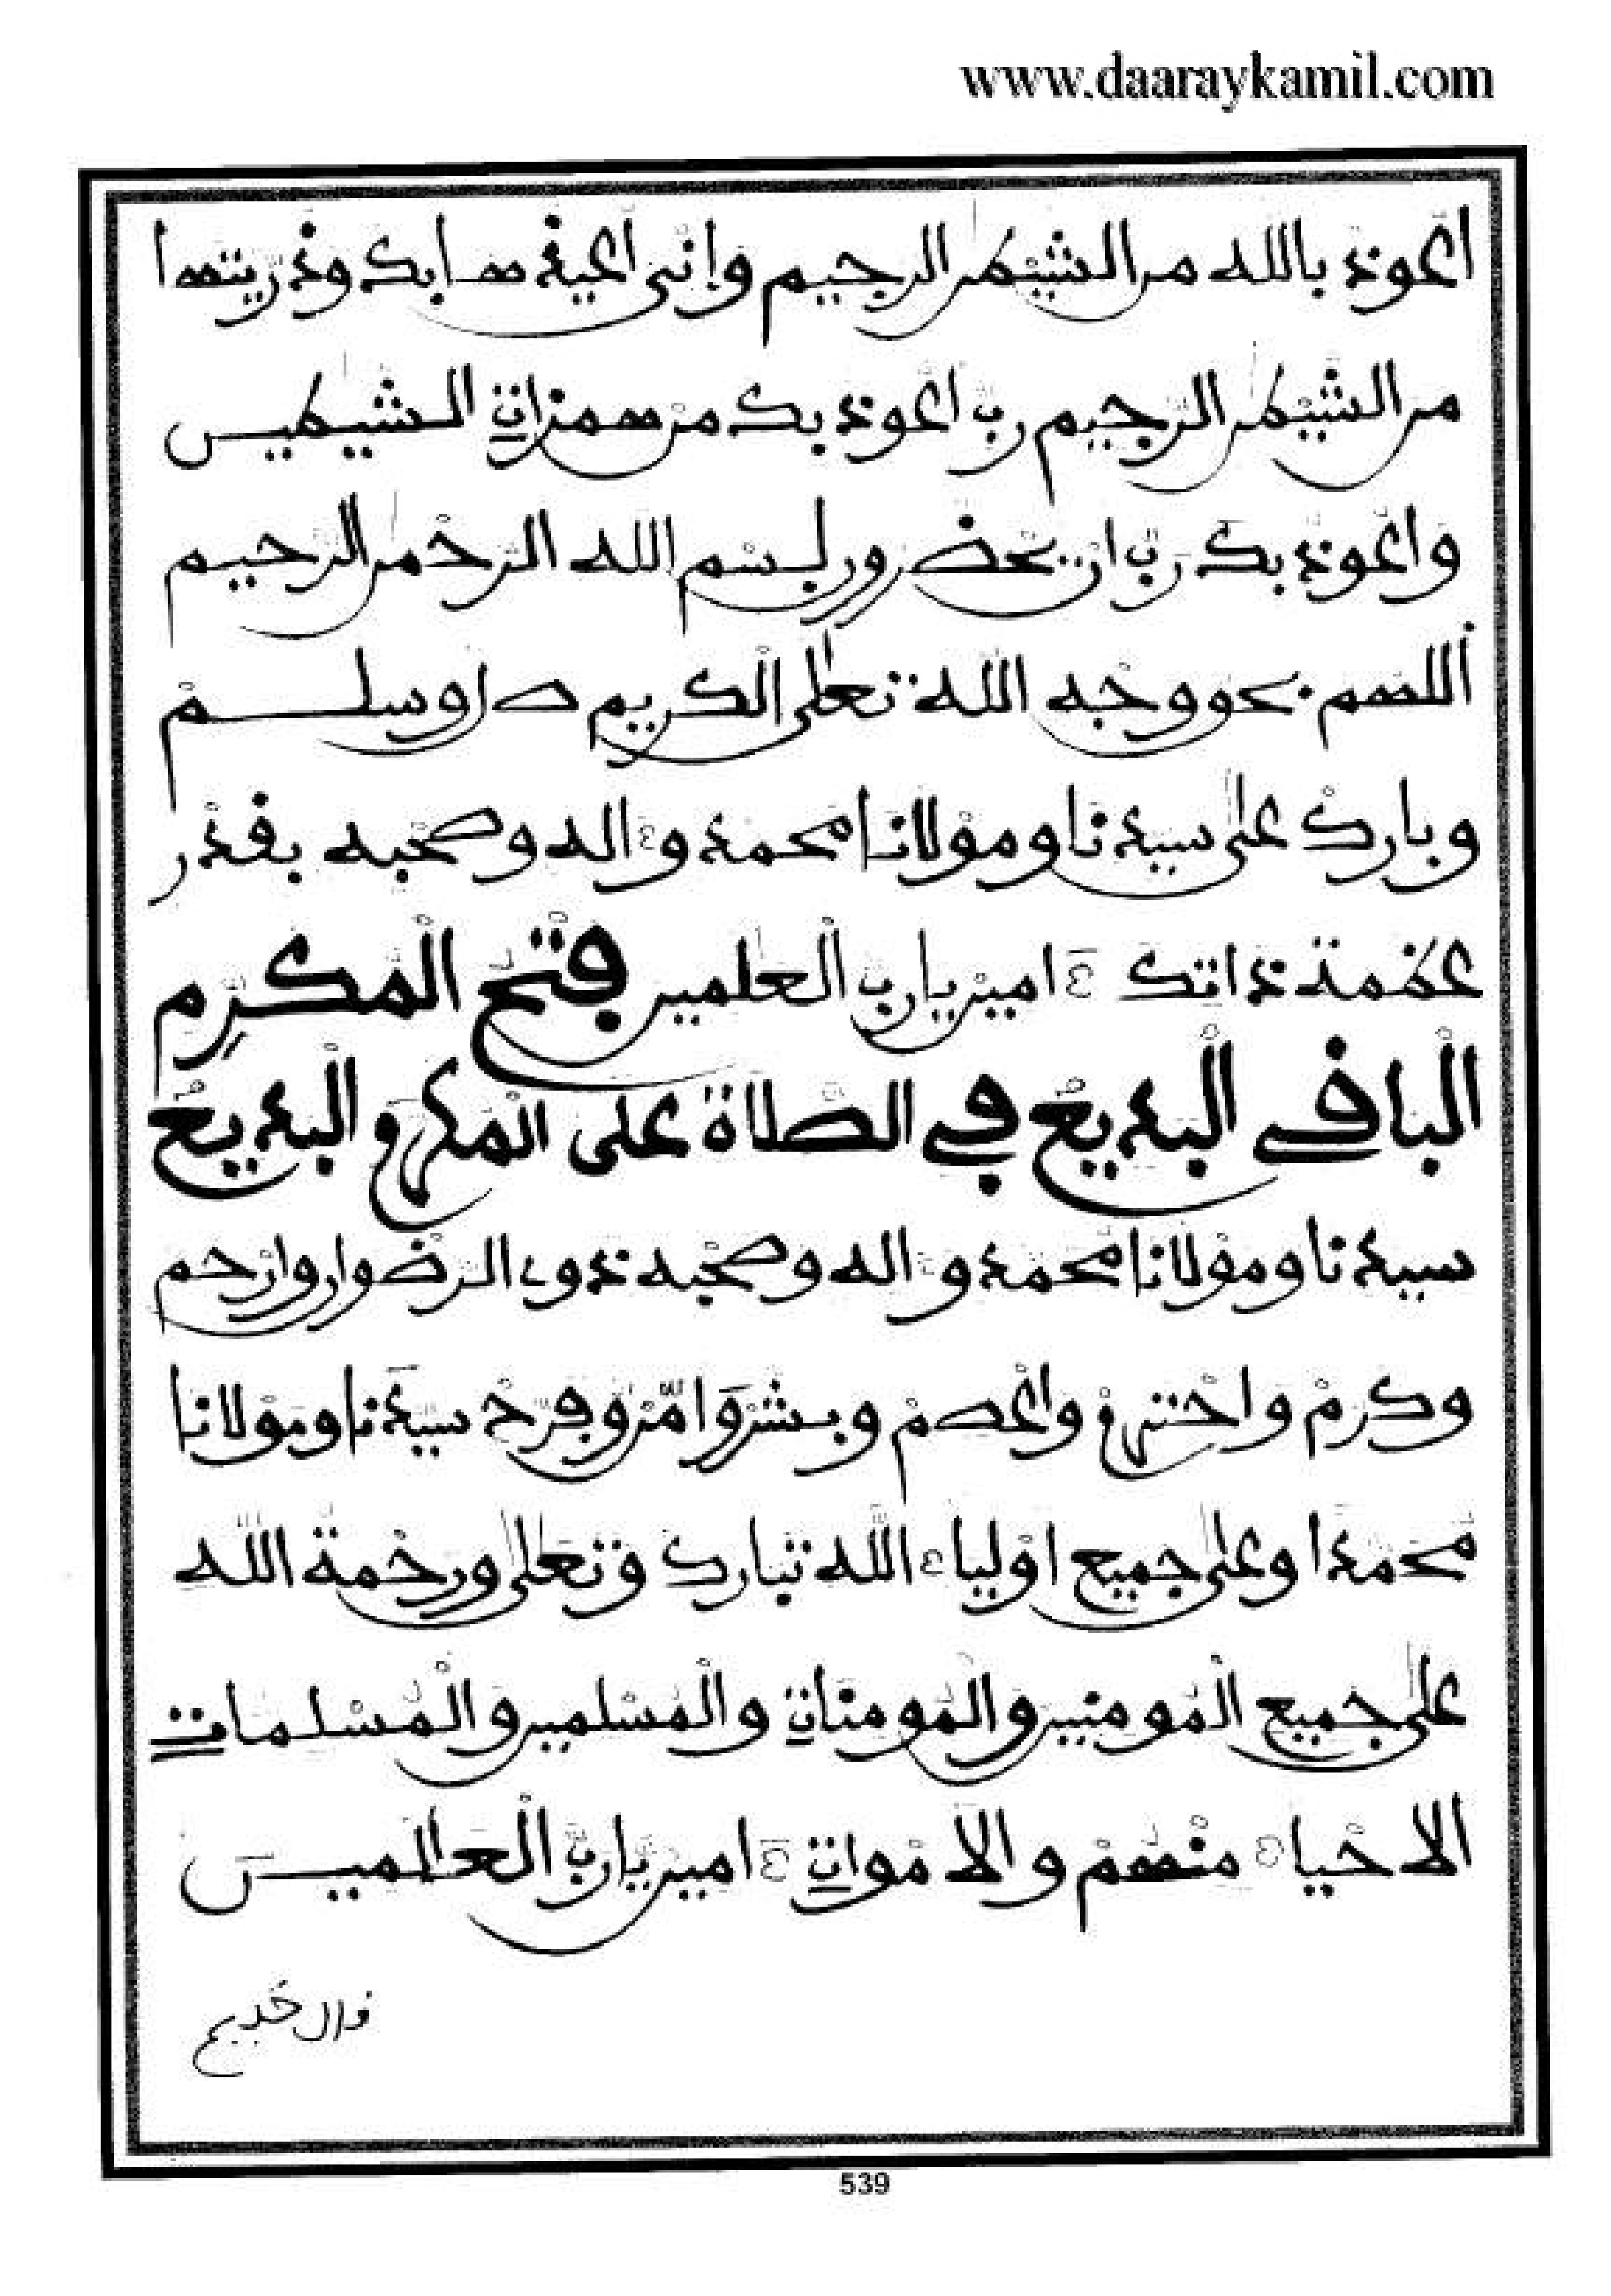 www.daaraykamil.com
أعوذ بالله من الشيطن الرجيم وإني أعيذها بك وذريتها
من الشيطن الرجيم رب أعوذ بك من همزات الشيطين
وأعوذ بك رب أن يحضرون بسم الله الرحمن الرحيم
اللهم بحق وجه الله تعلى الكريم صل وسلم
وبارك على سيدنا ومولانا محمد وءاله وصحبه بقدر
عظمة ذاتك ءامين يا رب العلمين فتح المكرم
الباقي البديع في الصلاة على المكرم البديع
سيدنا ومولانا محمد وءاله وصحبه ذوي الرضوان وارحم
وكرم واحترم واعصم وبشر وأمن وفرح سيدنا ومولانا
محمدا وعلى جميع أولياء الله تبارك وتعلى ورحمة الله
على جميع المومنين والمومنات والمسلمين والمسلمات
الأحياء منهم والأموات ءامين يا رب العالمين
فال خديم
539